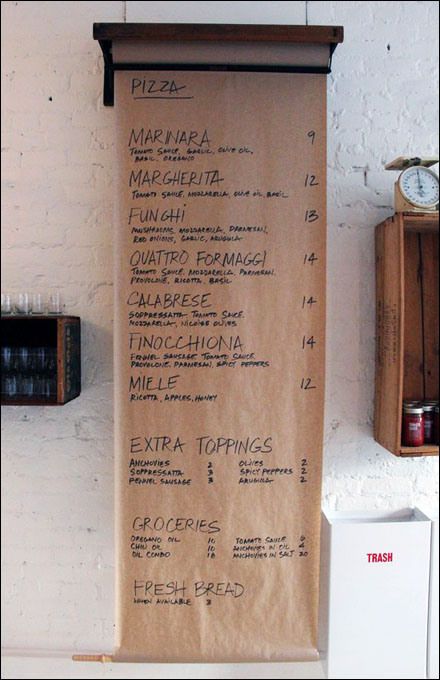 PIZZA
MARINARA 9
TOMATO SAUCE, GARLIC, OLIVE OIL,
BASIL, OREGANO
MARGHERITA 12
TOMATO SAUCE, MOZZARELLA, OLIVE OIL, BASIL
FUNGHI 13
MUSHROOMS, MOZZARELLA, PARMESAN,
RED ONIONS, GARLIC, ARUGULA
QUATTRO FORMAGGI 14
TOMATO SAUCE, MOZZARELLA, PARMESAN,
PROVOLONE, RICOTTA, BASIL
CALABRESE 14
SOPPRESSATTA TOMATO SAUCE,
MOZZARELLA, NICOISE OLIVES
FINOCCHIONA 14
FENNEL SAUSAGE TOMATO SAUCE,
PROVOLONE, PARMESAN, SPICY PEPPERS
MIELE 12
RICOTTA, APPLES, HONEY
EXTRA TOPPINGS
ANCHOVIES 2 OLIVES 2
SOPPRESSATTA 3 SPICY PEPPERS 2
FENNEL SAUSAGE 3 ARUGULA 2
GROCERIES
OREGANO OIL 10 TOMATO SAUCE 6
CHILI OIL 10 ANCHOVIES IN OIL 4
OIL COMBO 18 ANCHOVIES IN SALT 20
FRESH BREAD
WHEN AVAILABLE 3
TRASH